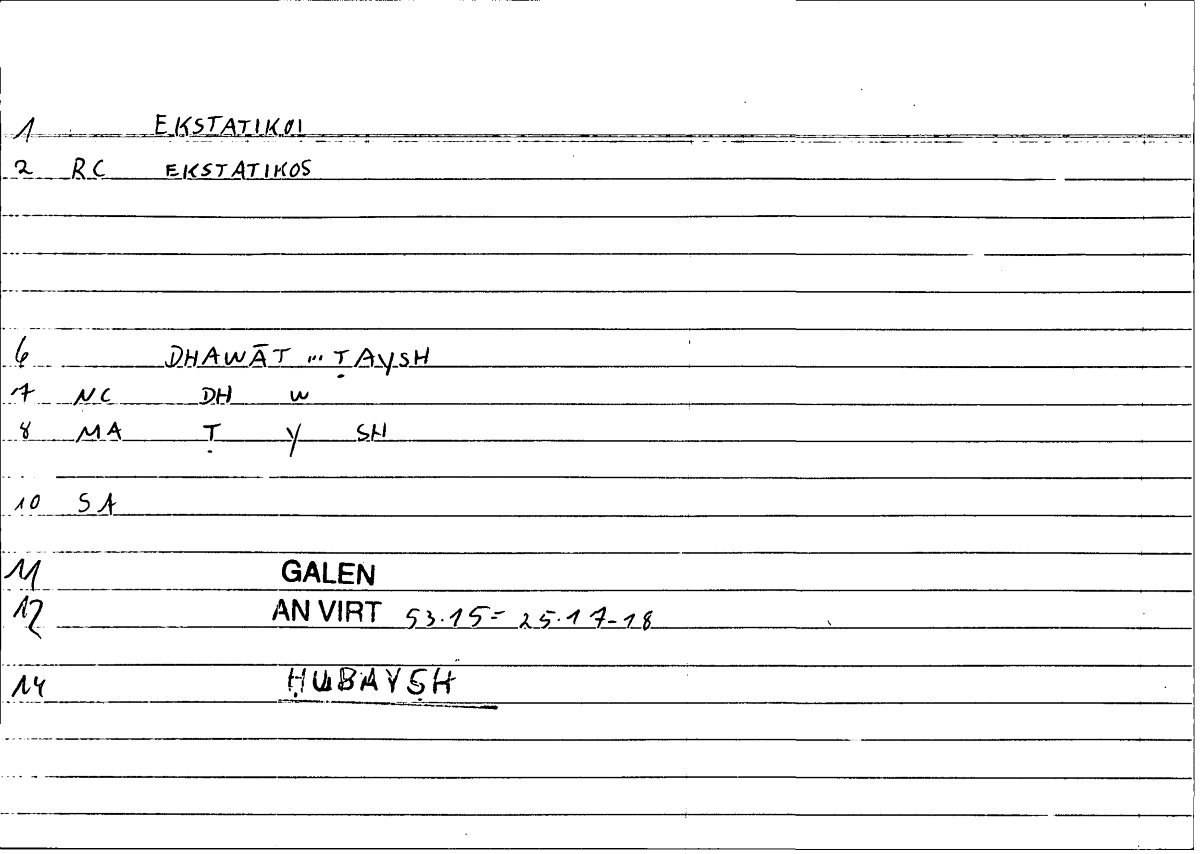 1 EKSTATIKOI
2 RC EKSTATIKOS
6 DHAWĀT ... ṬAYSH
7 NC DH W
8 MA Ṭ Y SH
10 SA
11 GALEN
12 AN VIRT 53.15 = 25.17-18
14 ḤUBAYSH